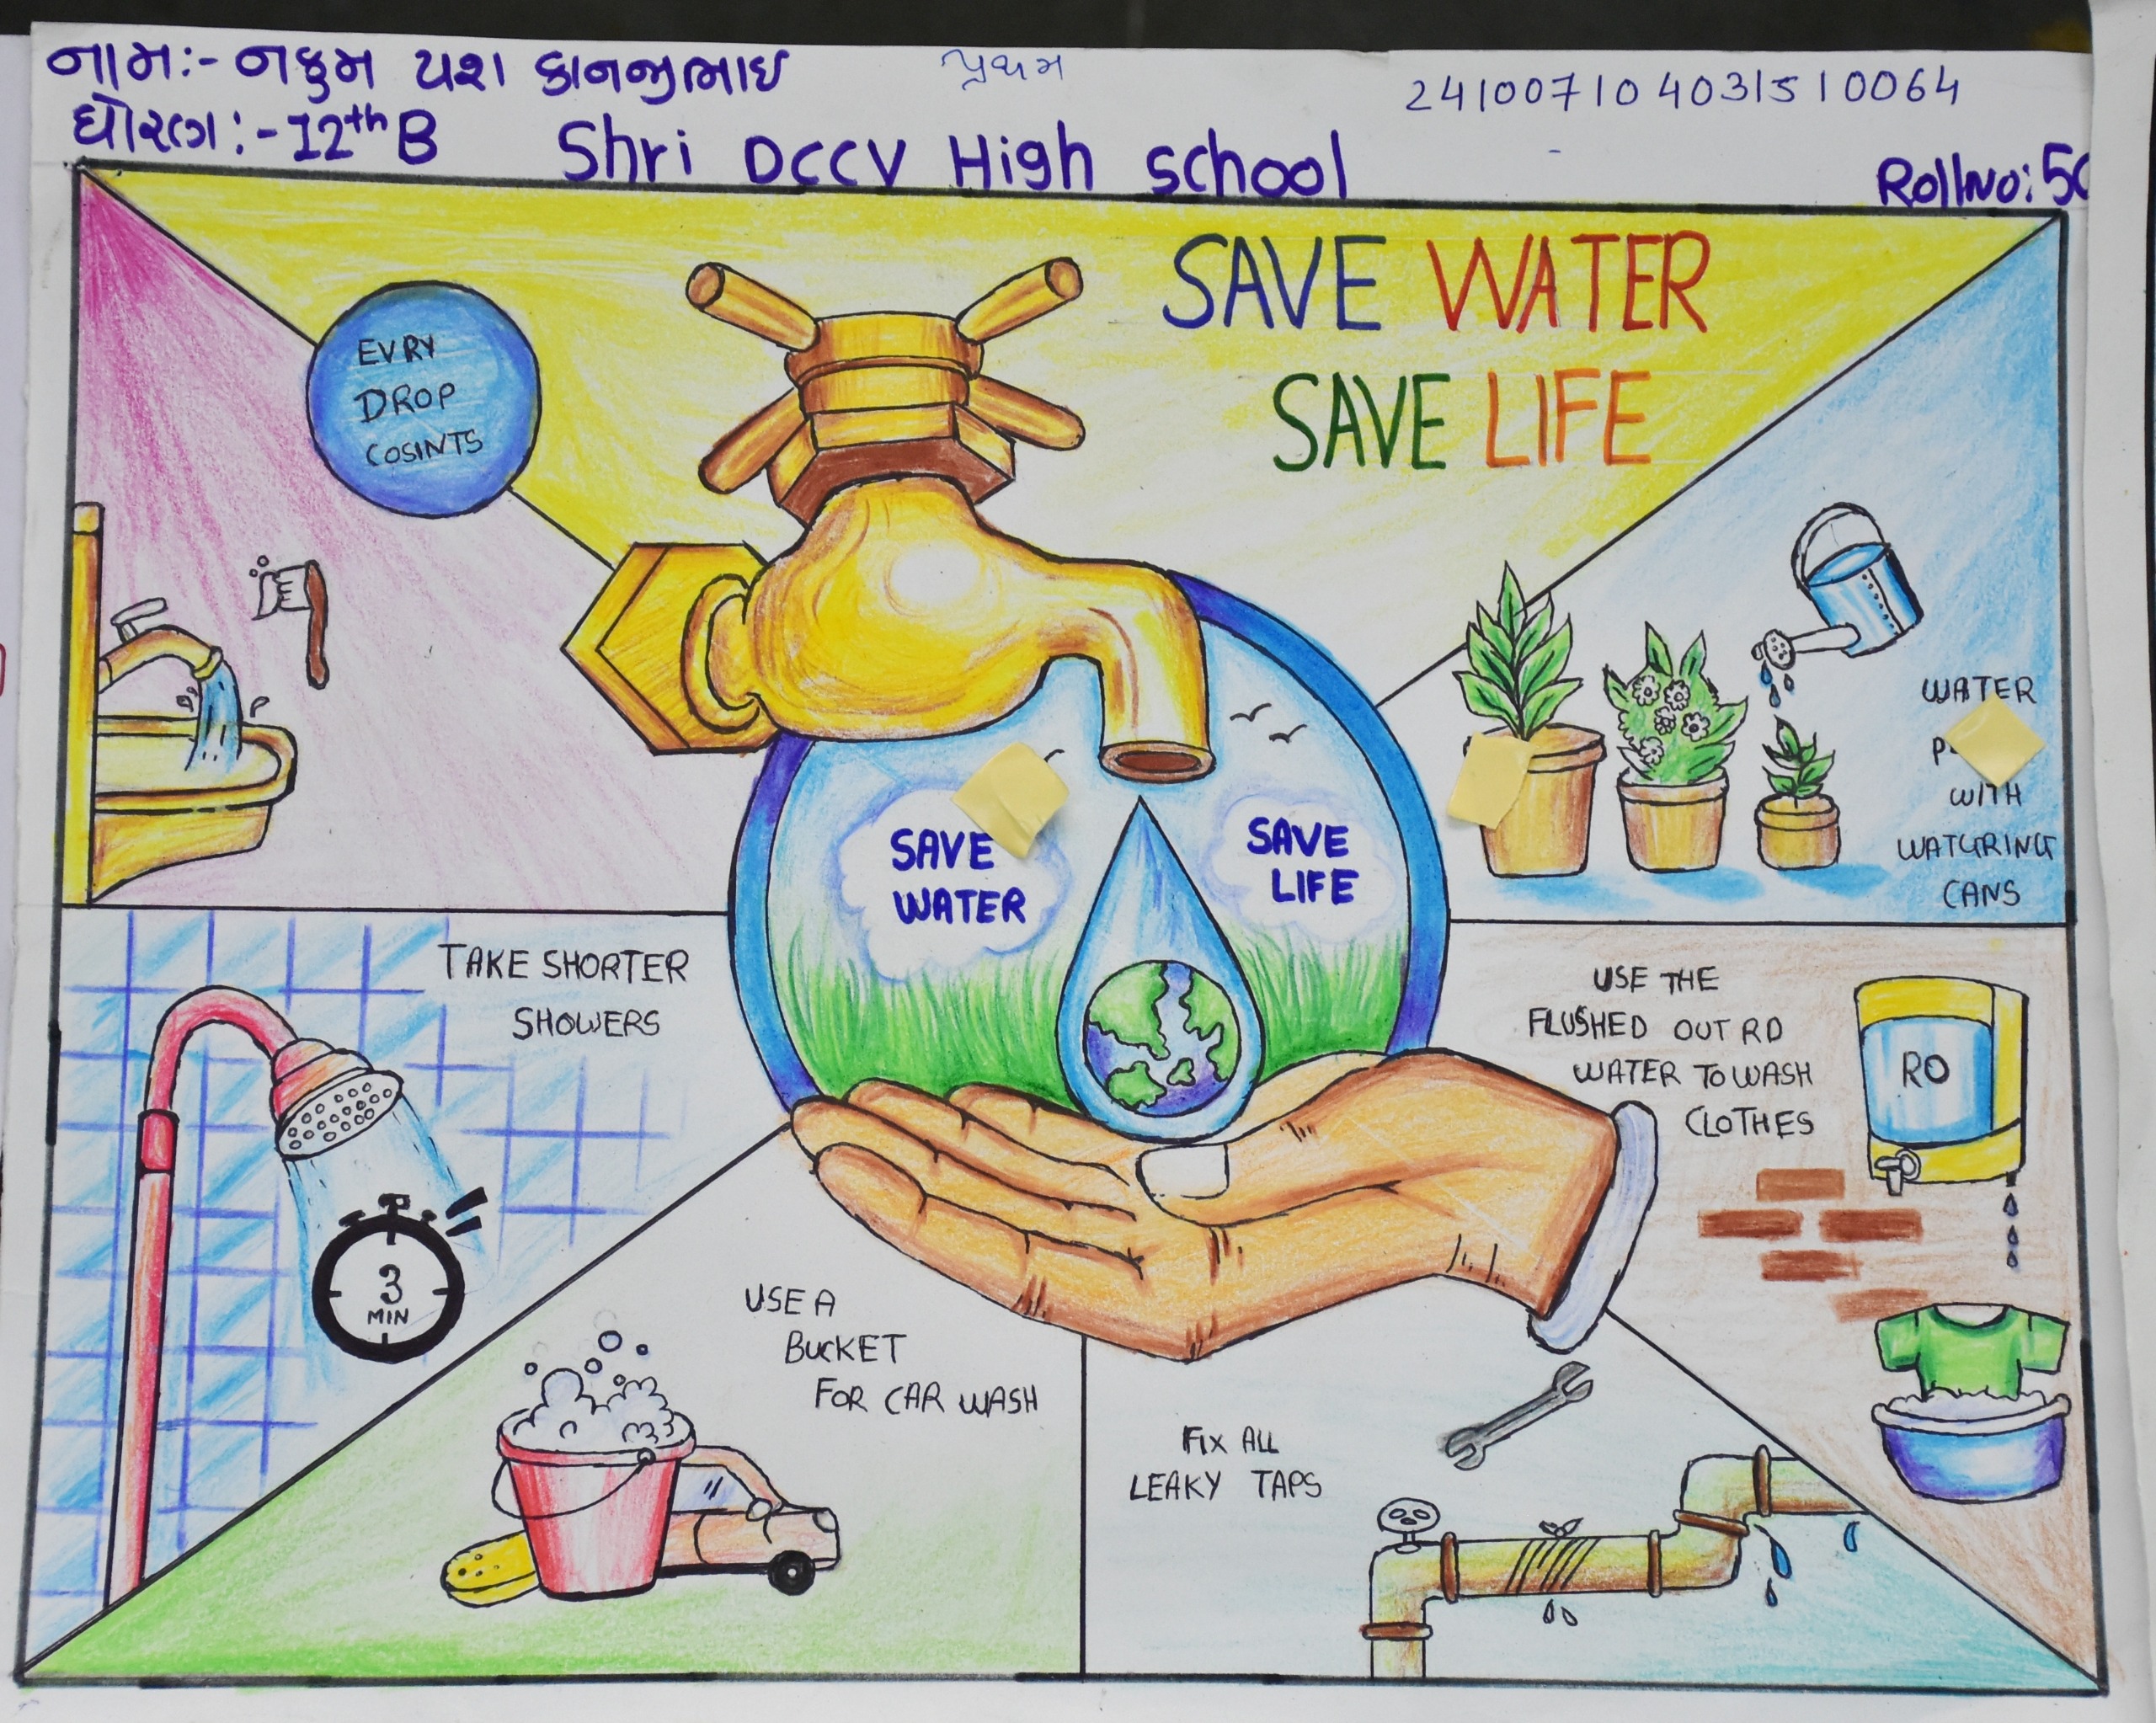 નામ:- નકુમ યશ કાનજીભાઇ
પ્રથમ
24100710403151 0064
ધોરણ:- 12th B
Shri DCCV High school
Roll No: 50
SAVE WATER
SAVE LIFE
EVRY
DROP
COSINTS
WATER
WITH
WATGRING
CANS
SAVE
WATER
SAVE
LIFE
TAKE SHORTER
SHOWERS
3
MIN
USE THE
FLUSHED OUT RO
WATER TO WASH
CLOTHES
RO
USE A
BUCKET
FOR CAR WASH
FIX ALL
LEAKY TAPS